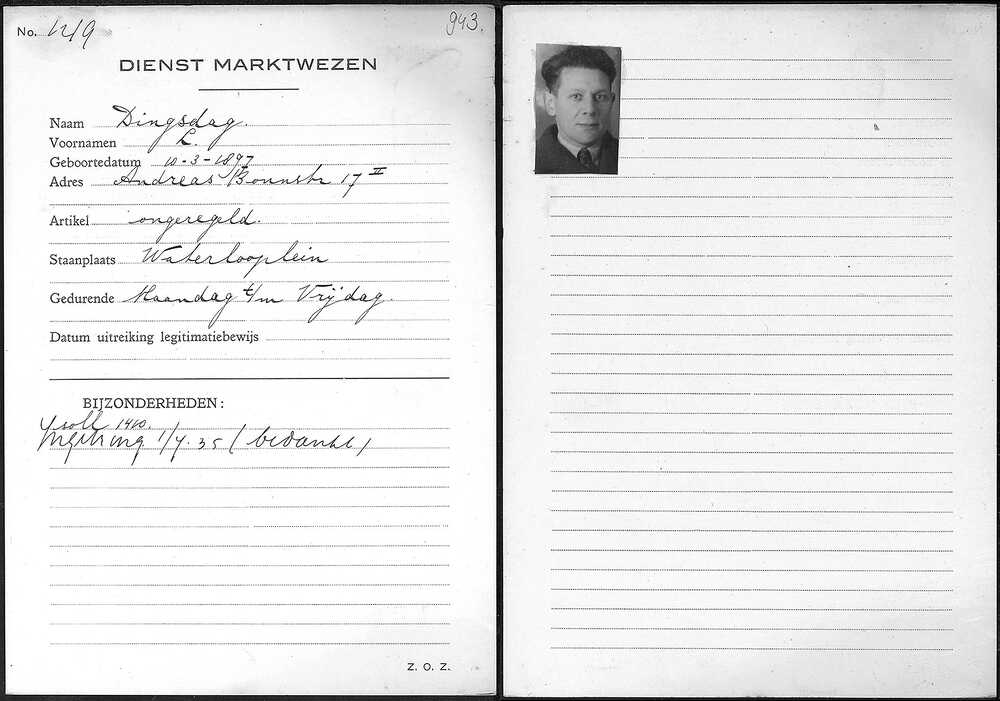 No. 1219
943.
DIENST MARKTWEZEN
Naam Dingsdag.
Voornamen L.
Geboortedatum 10-3-1897
Adres Andreas Bonnstr 17 II
Artikel ongeregeld.
Staanplaats Waterlooplein
Gedurende Maandag t/m Vrijdag.
Datum uitreiking legitimatiebewijs
BIJZONDERHEDEN:
soll 1410.
1/7.35 (bedankt)
Z. O. Z.